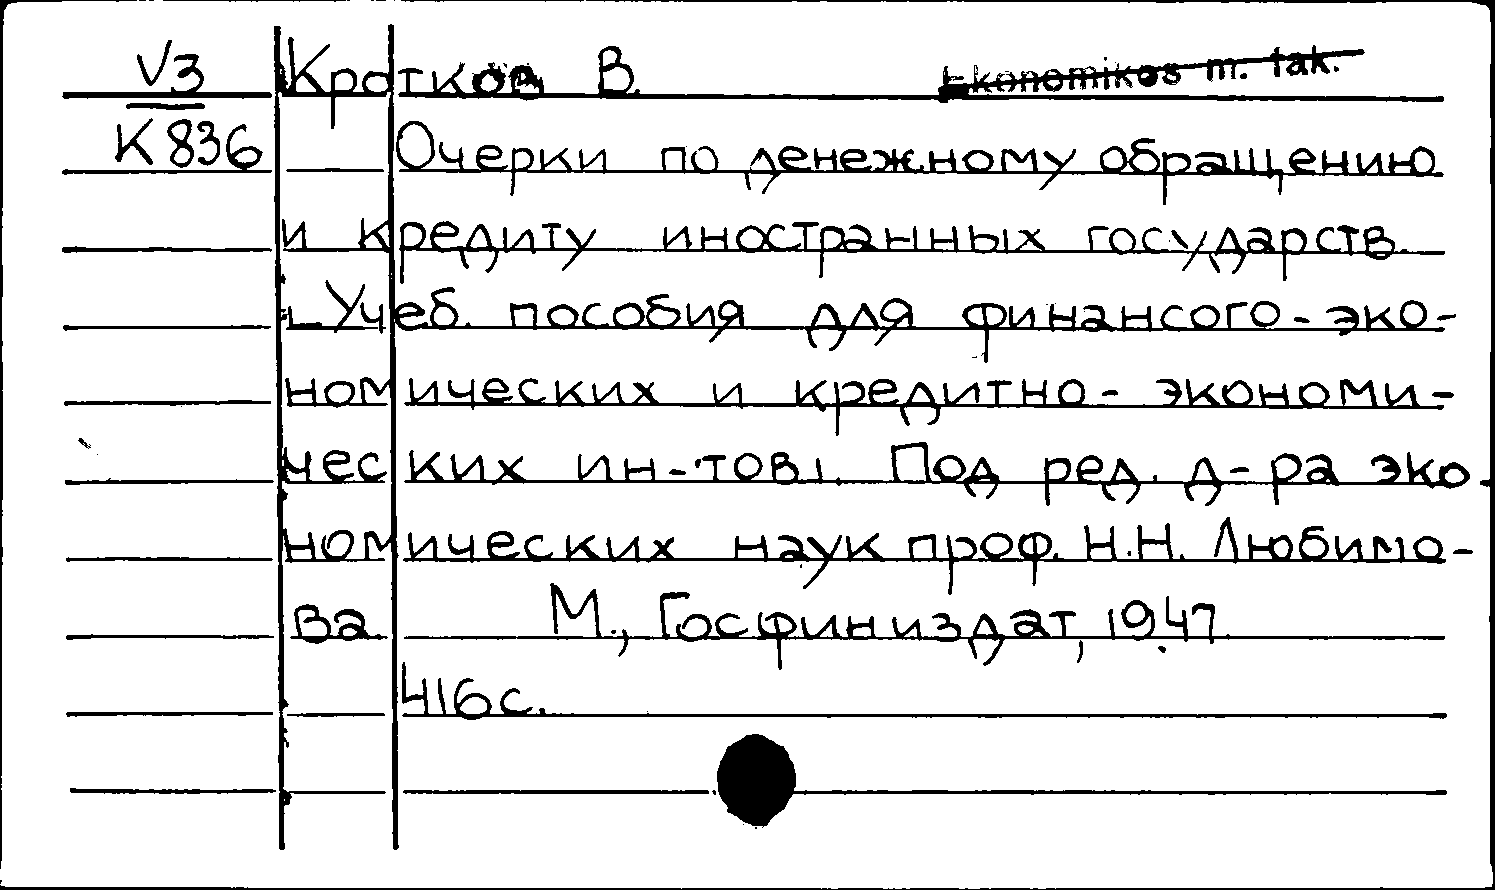 V3 Кротков В. Ekonomikos m. fak.
K836 Очерки по денежному обращению
и кредиту иностранных государств.
Учеб. пособия для финансого-эко-
номических и кредитно-экономи-
ческих ин-тов. Под ред. д-ра эко
номических наук проф. Н.Н. Любимо-
ва М., Госфиниздат, 1947
416с.